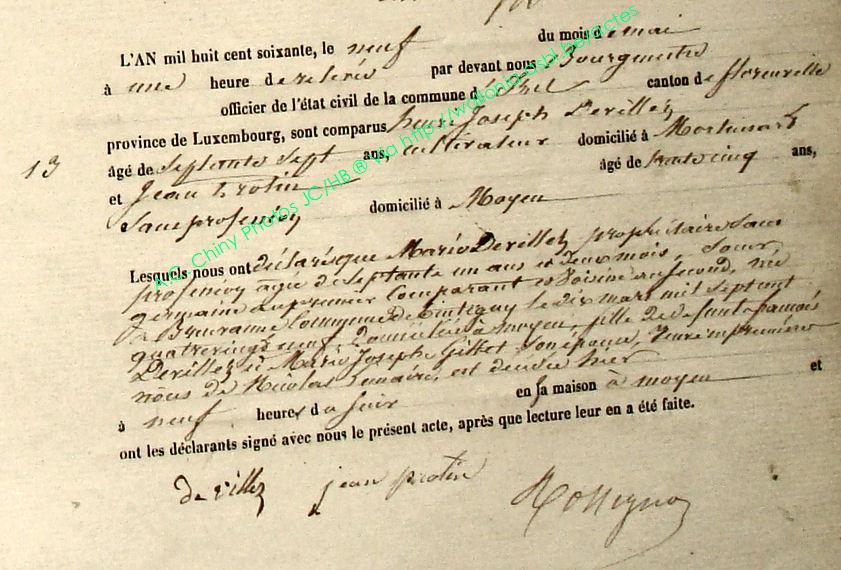 L'AN mil huit cent soixante, le neuf du mois de mai
à une heure de relevée par devant nous Bourgmestre
officier de l'état civil de la commune d'Izel canton de florenville
13
province de Luxembourg, sont comparus henri Joseph Devillez
âgé de septante sept ans, cultivateur domicilié à
et Jean Protin âgé de ans,
sans profession domicilié à Moyen
Lesquels nous ont déclaré que Marie Devillez propriétaire sans
profession agée de septante un ans et deux mois, sœur
germaine au premier comparant et voisine au second, née
à Commune de Tintigny le dix mars mil sept cent
quatrevingt neuf, domiciliée à moyen, fille de
Devillez et Marie Joseph Gillet son épouse, veuve en première
noces de Nicolas Lemaire, est décédée hier
à neuf heures du soir en sa maison à moyen et
ont les déclarants signé avec nous le présent acte, après que lecture leur en a été faite.
de villez jean protin Rossignon
A.G. Chiny Photos JC/HB ® via http://wallonia.asbl.be/actes